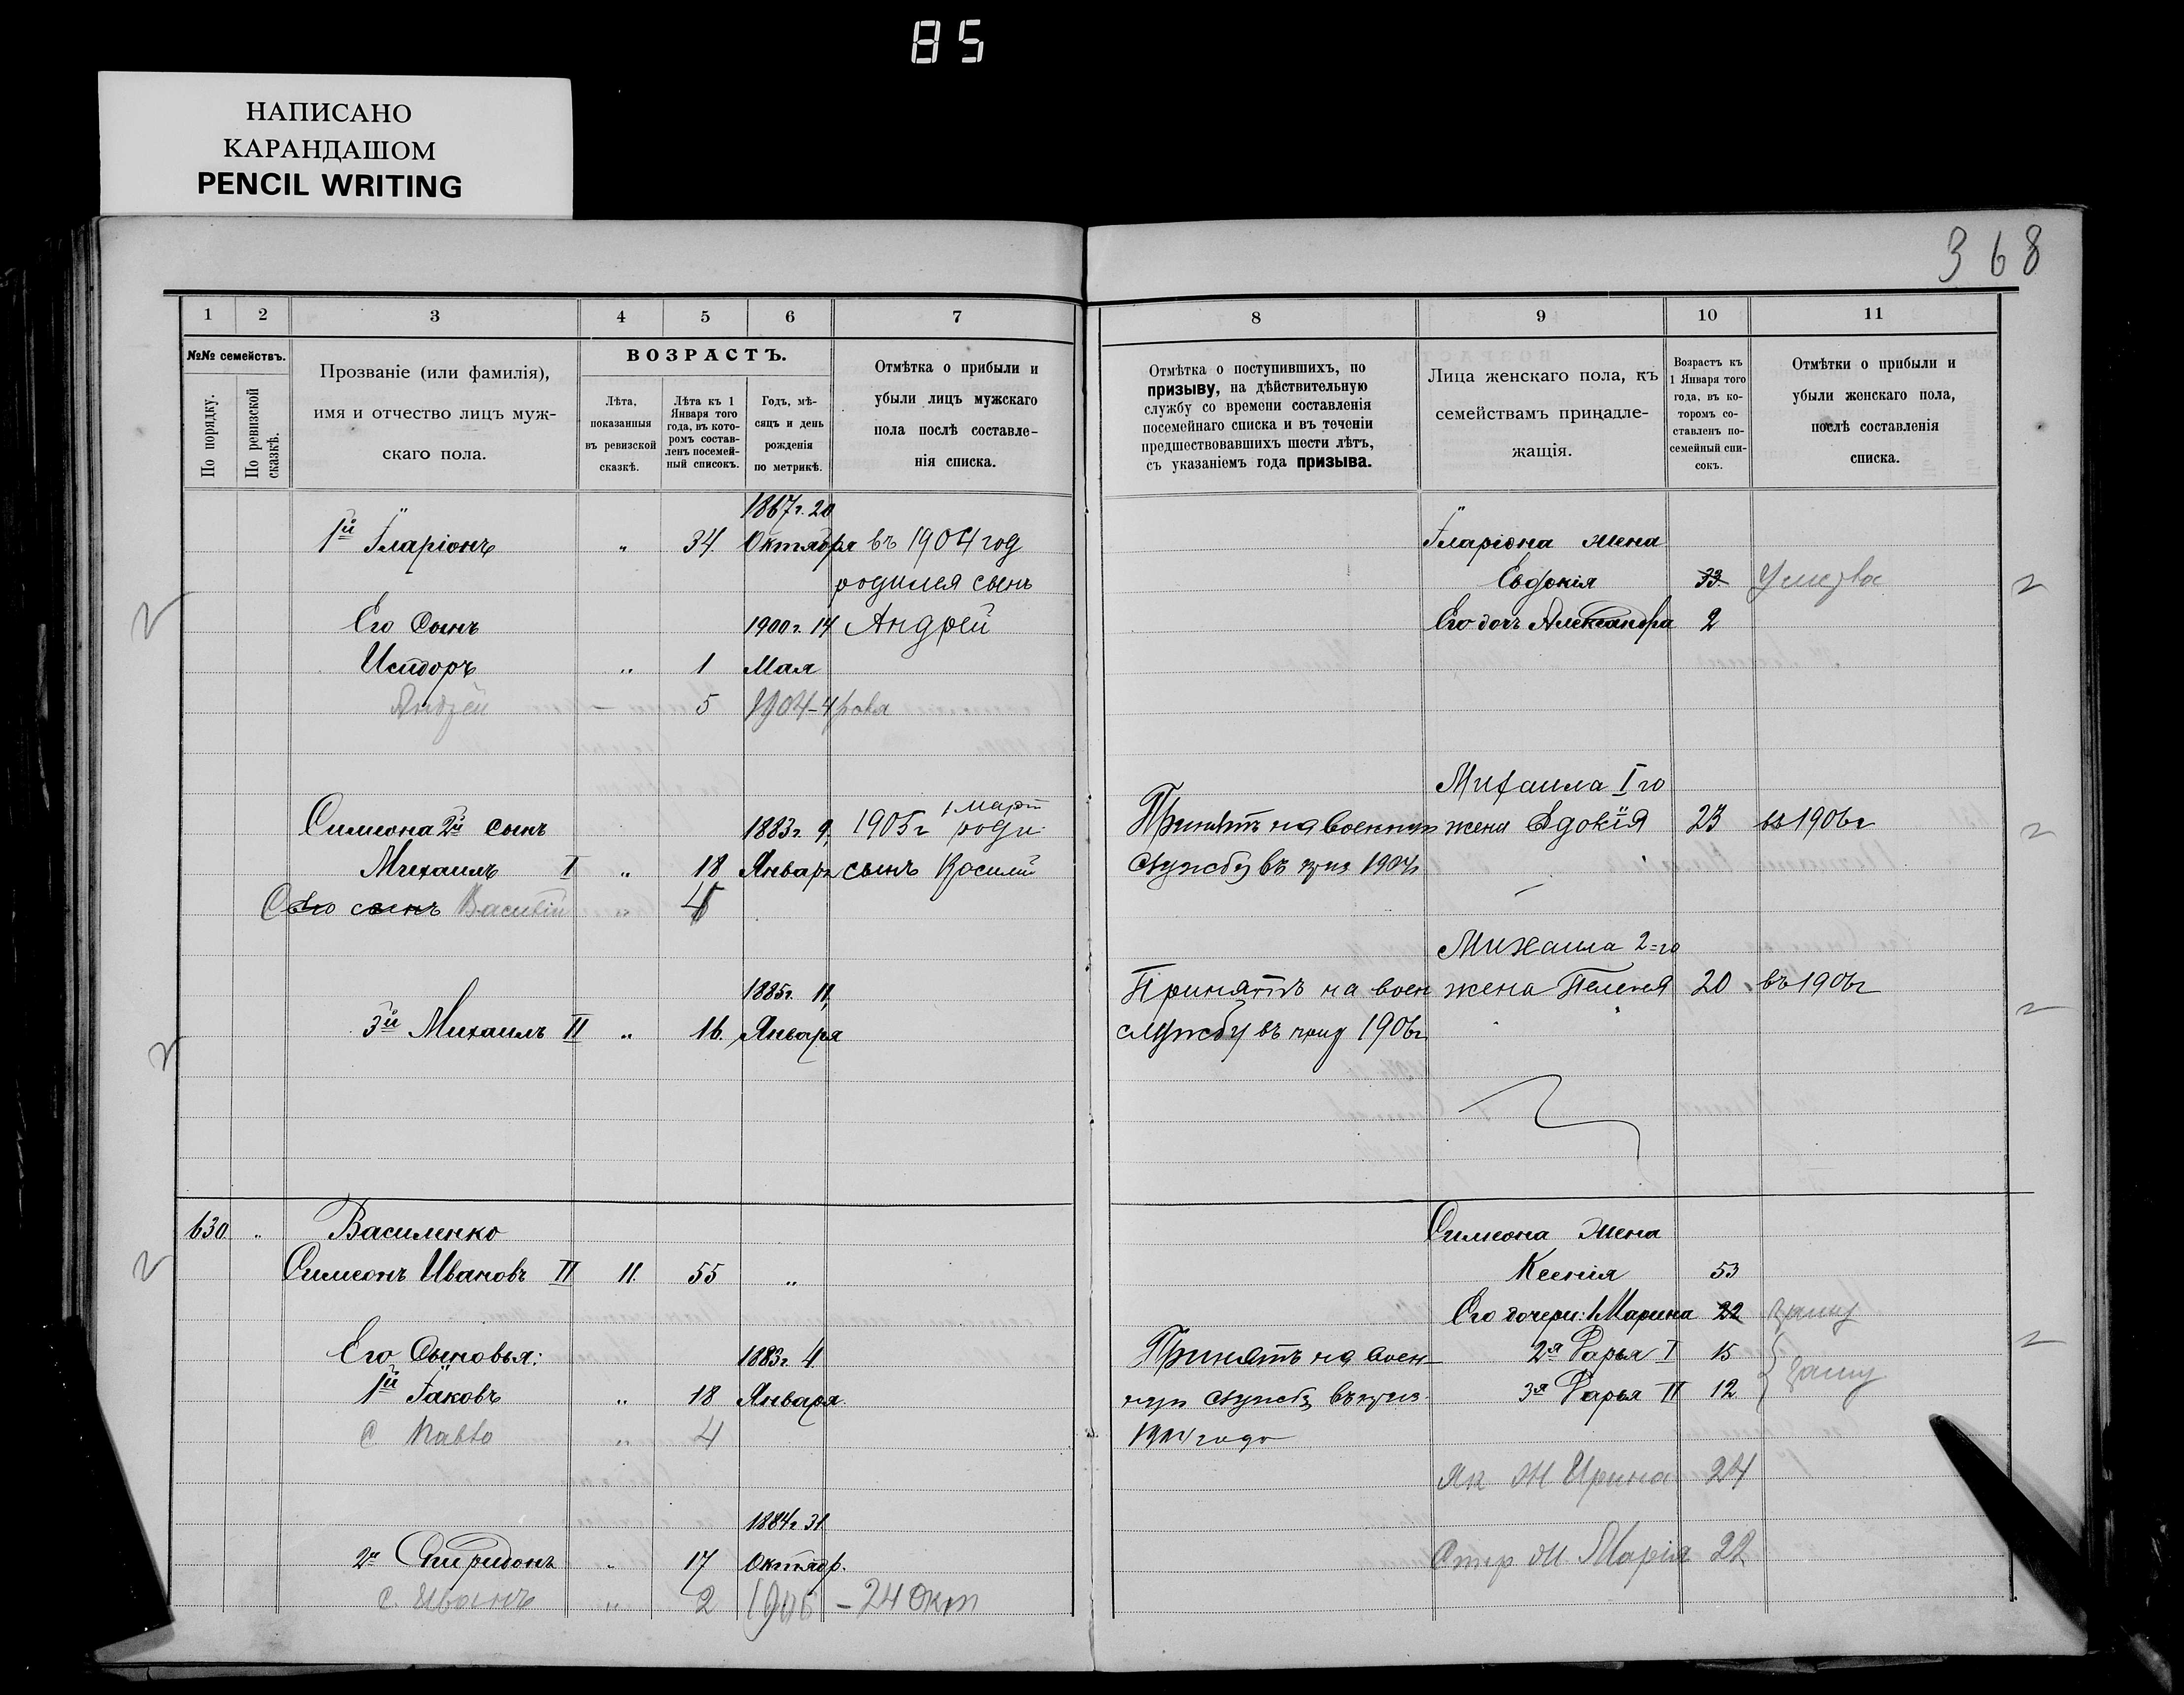 85
НАПИСАНО
КАРАНДАШОМ
PENCIL WRITING
368
1 2 3 4 5 6 7
№№ семействъ.
По порядку.
По ревизской сказкѣ.
Прозваніе (или фамилія),
имя и отчество лицъ муж-
скаго пола.
ВОЗРАСТЪ.
Лѣта,
показанныя
въ ревизской
сказкѣ.
Лѣта къ 1
Января того
года, въ кото-
ромъ состав-
ленъ посемей-
ный списокъ.
Годъ, мѣ-
сяцъ и день
рожденія
по метрикѣ.
Отмѣтка о прибыли и
убыли лицъ мужскаго
пола послѣ составле-
нія списка.
1867г. 20
1й Іларіонъ " 34. Октября въ 1904 год
родился сынъ
Его Сынъ 1900г. 14 Андрей
Исидоръ " 1 Мая
Андрей 5 1904-4
1 март
Симеона 2й сынъ 1883г. 9, 1905г роди
Михаилъ I " 18 Января сынъ Василий
Его сынъ Василій "
1885г. 11,
3й Михаилъ II " 16. Января
630 " Василенко
Симеонъ Ивановъ II 11. 55 "
Его Сыновья: 1883г 4
1й Іаковъ " 18 Января.
С Павло " 4
1884г 31
2й Спиридонъ " 17 Октябр.
С. Иванъ " 2 1906 - 24 окт
8 9 10 11
Отмѣтка о поступившихъ, по
призыву, на дѣйствительную
службу со времени составленія
посемейнаго списка и въ теченіи
предшествовавшихъ шести лѣтъ,
съ указаніемъ года призыва.
Лица женскаго пола, къ
семействамъ принадле-
жащія.
Возрастъ къ
1 Января того
года, въ ко-
торомъ со-
ставленъ по-
семейный спи-
сокъ.
Отмѣтки о прибыли и
убыли женскаго пола,
послѣ составленія
списка.
Іларіона жена
Евфонія 33.
Его дочь Александра 2
Михаила I го
Принятъ на военную жена Едокія 23 въ 1906г
службу въ приз 1904
Михаила 2=го
Принятъ на воен жена Пелегея 20 въ 1906г
службу въ приз 1906г
Симеона Жена
Ксенія 53
Его дочери: 1 Марина 22 Замуж
Принятъ на воен- 2я Дарья I 15
ную службу въ приз 3я Дарья II 12 Замуж
1904 года
Як Ж Ирина 24
Спир Ж Марія 22